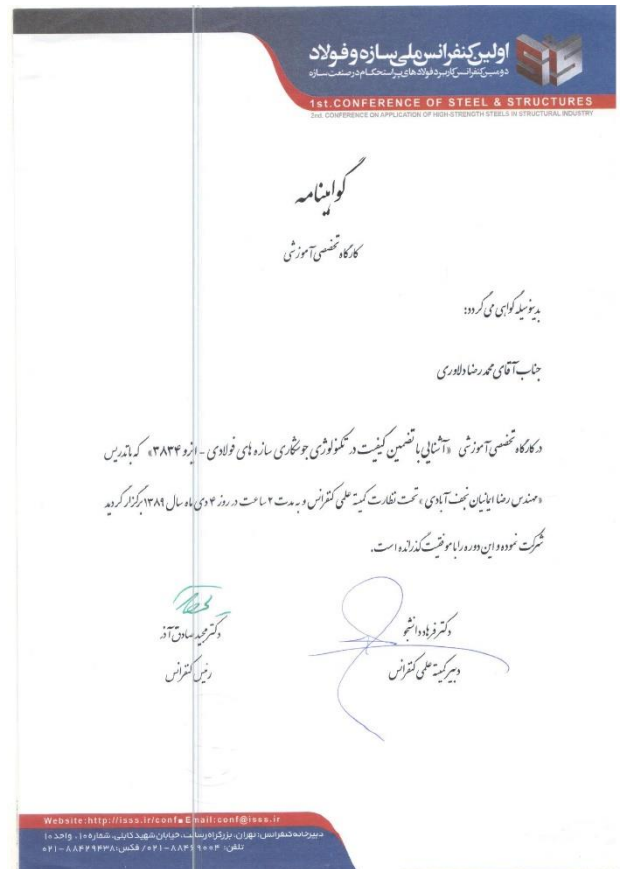 SIS
اولین کنفرانس ملی سازه و فولاد
دومین کنفرانس کاربرد فولادهای پر استحکام در صنعت سازه
1st.CONFERENCE OF STEEL & STRUCTURES
2nd. CONFERENCE ON APPLICATION OF HIGH-STRENGTH STEELS IN STRUCTURAL INDUSTRY
گواهینامه
کارگاه تخصصی آموزشی
بدینوسیله گواهی می گردد:
جناب آقای محمدرضا دلاوری
در کارگاه تخصصی آموزشی «آشنایی با تضمین کیفیت در تکنولوژی جوشکاری سازه های فولادی - ایزو ۳۸۳۴» که با تدریس
«مهندس رضا ایمانیان نجف آبادی» تحت نظارت کمیته علمی کنفرانس و به مدت ۲ ساعت در روز ۴ دی ماه سال ۱۳۸۹ برگزار گردید
شرکت نموده و این دوره را با موفقیت گذرانده است.
دکتر فرهاد دانشجو
دبیر کمیته علمی کنفرانس
دکتر مجید صادق آذر
رئیس کنفرانس
Website:http://isss.ir/conf Email:conf@isss.ir
دبیرخانه کنفرانس: تهران، بزرگراه رسالت، خیابان شهید کابلی، شماره ۱۰، واحد ۱۰
تلفن: ۸۸۴۶۹۰۰۴-۰۲۱/ فکس: ۸۸۴۲۹۴۳۸-۰۲۱